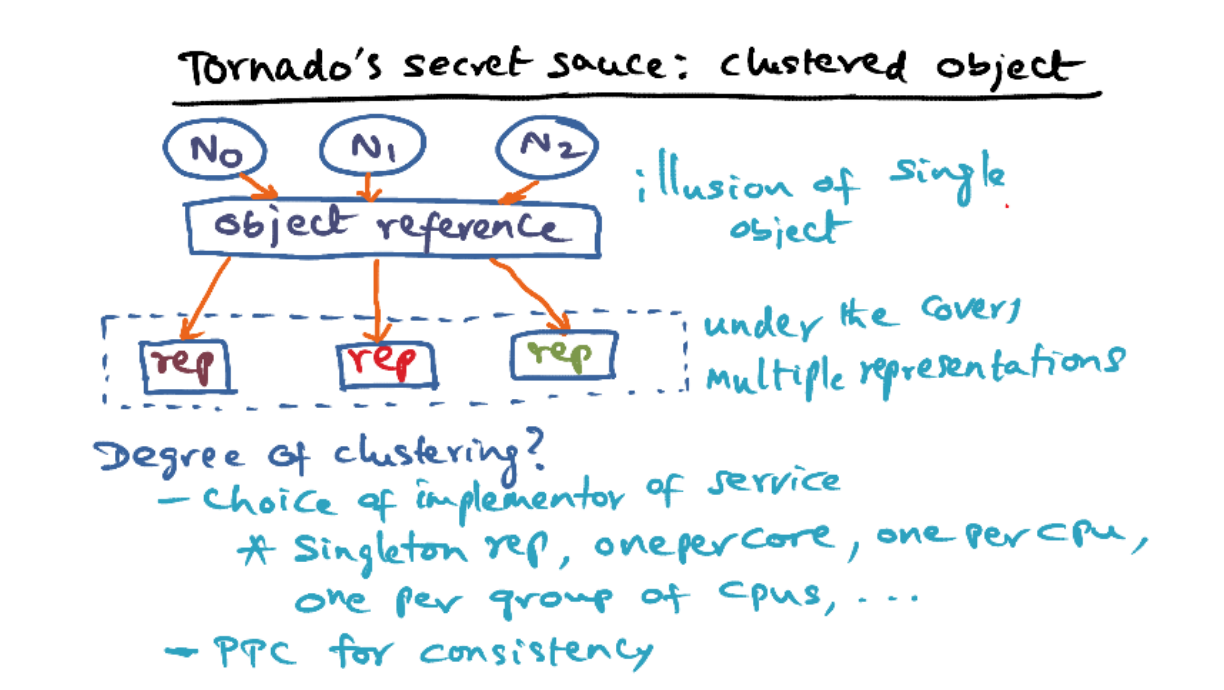 Tornado's secret sauce: clustered object
N0 N1 N2
illusion of single
object
object reference
rep rep rep
under the covers
multiple representations
Degree of clustering?
- Choice of implementor of service
* Singleton rep, one per core, one per cpu,
one per group of cpus, ...
- PPC for consistency